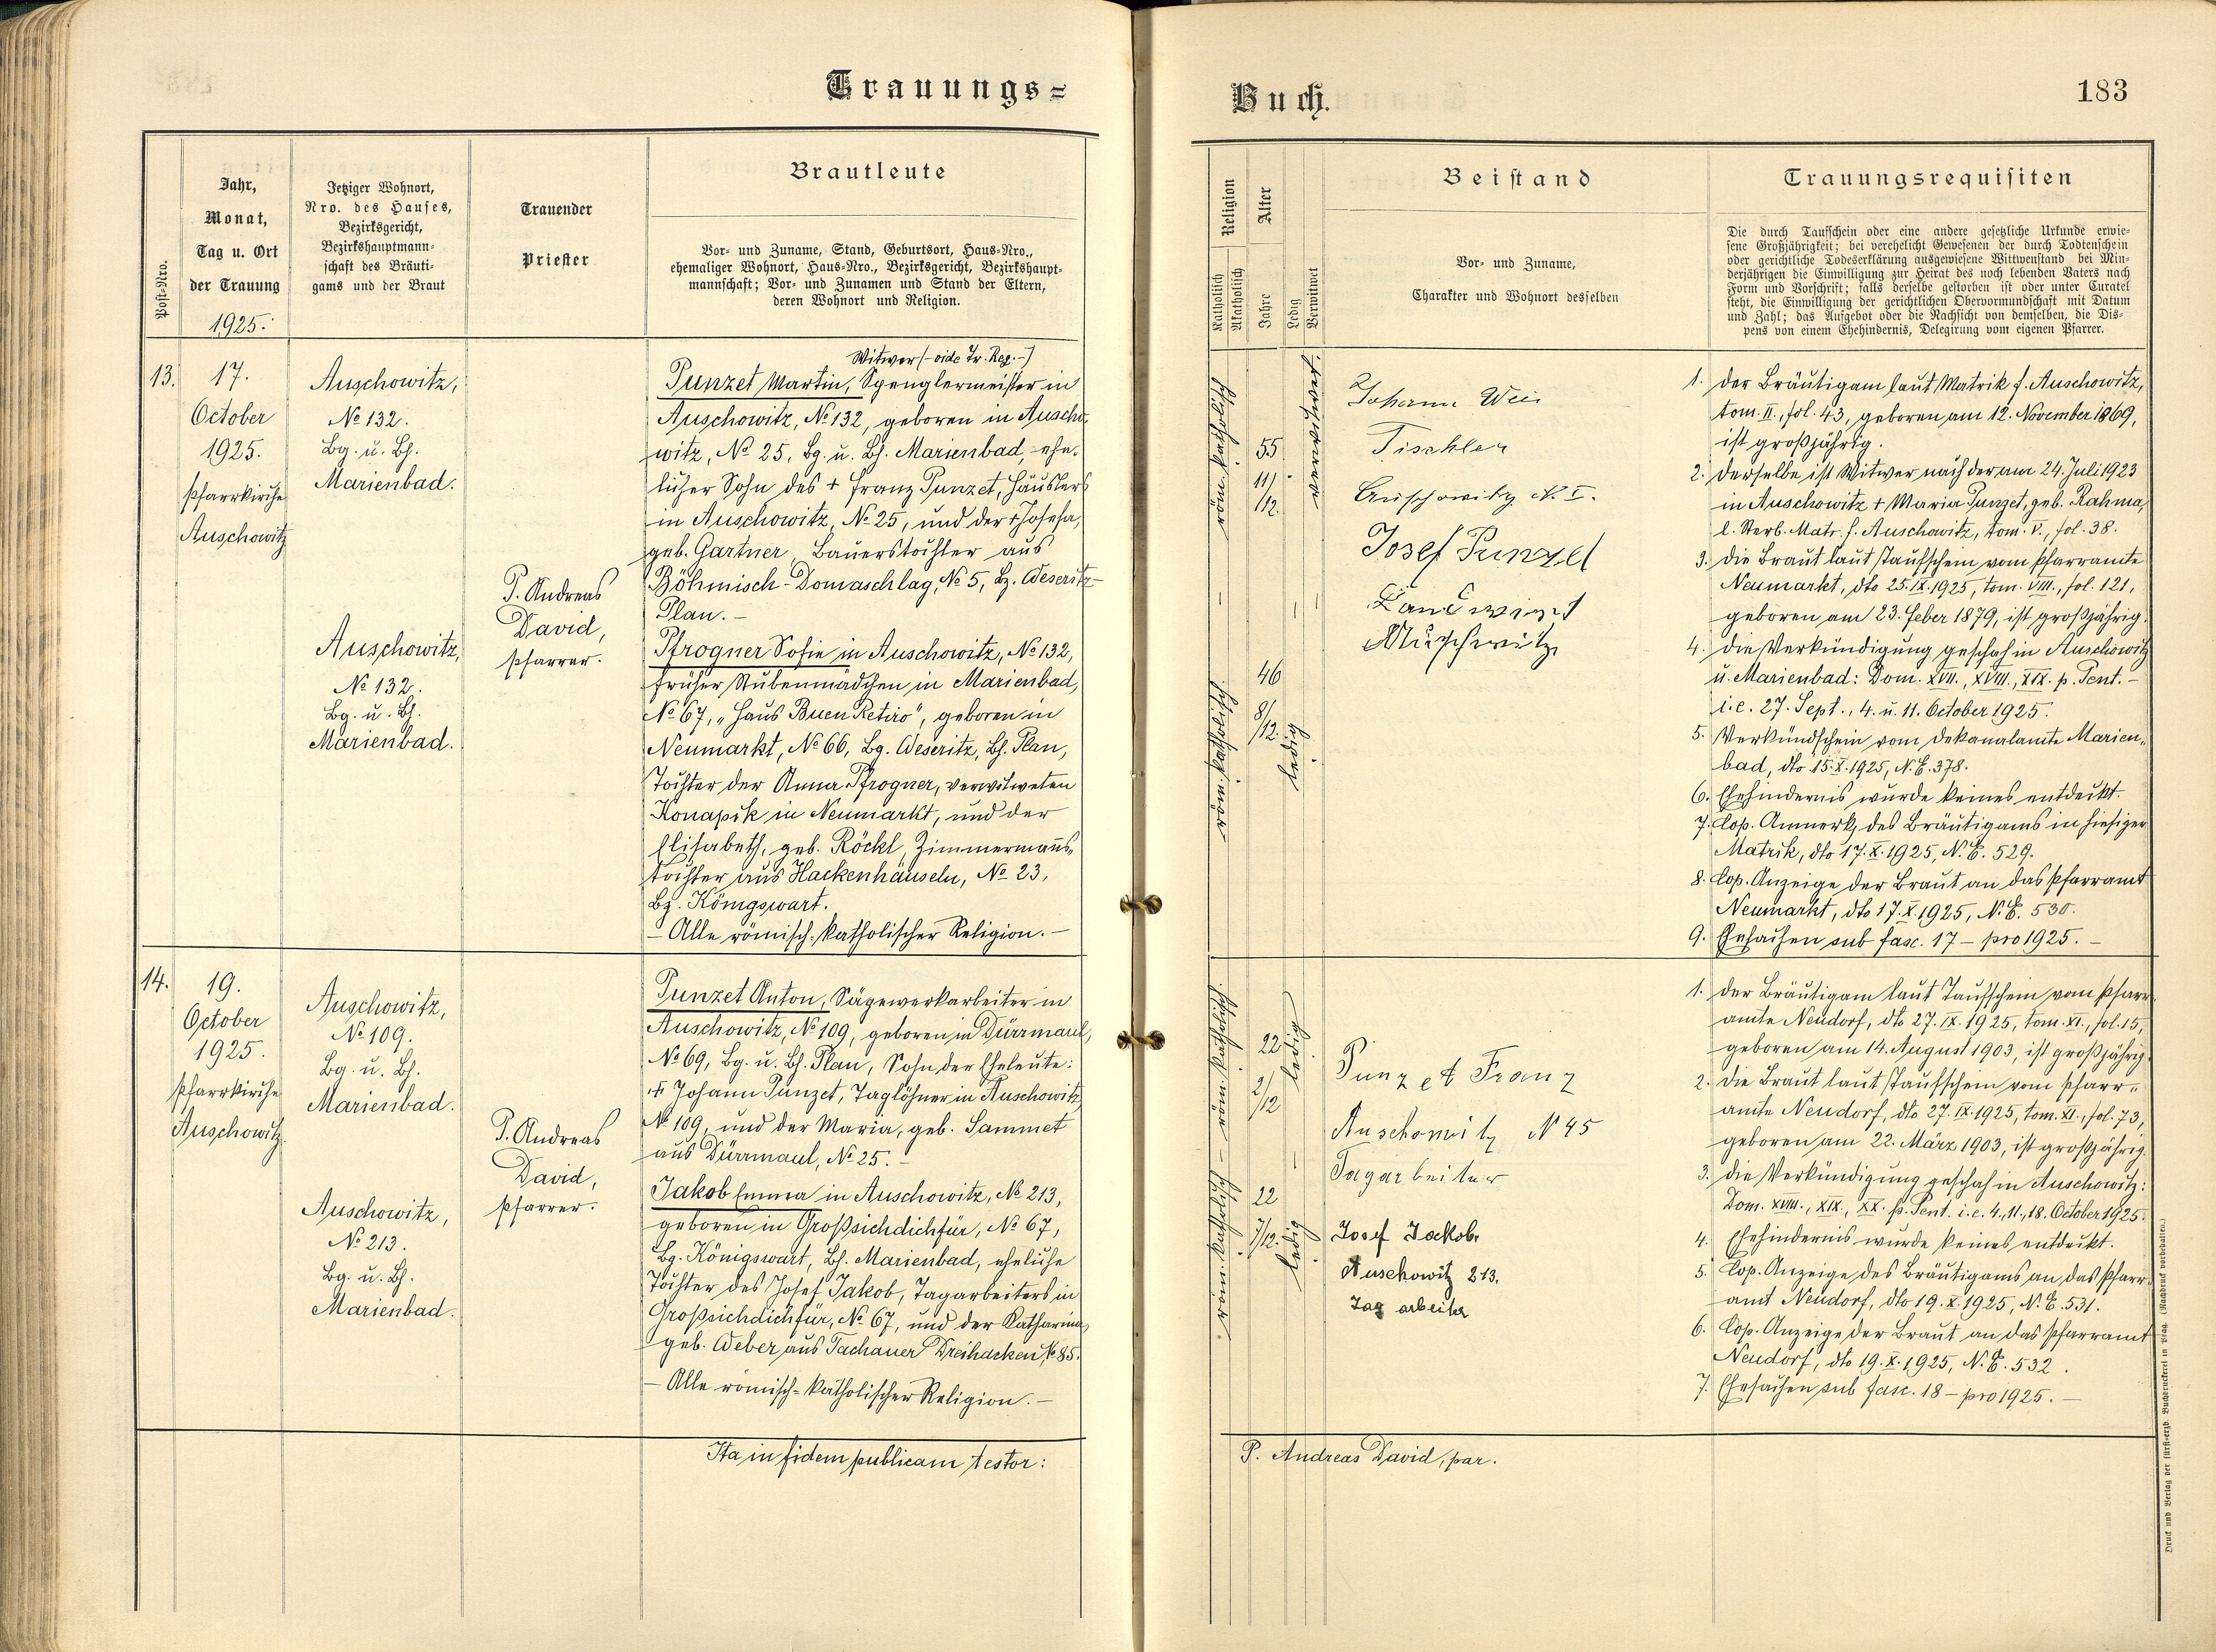 Trauungs=
Jahr,
Monat,
Tag u. Ort
der Trauung
1925.
Post=Nro.
Jetziger Wohnort,
Nro. des Hauses,
Bezirksgericht,
Bezirkshauptmann=
schaft des Bräuti=
gams und der Braut
Trauender
Priester
Brautleute
Vor= und Zuname, Stand, Geburtsort, Haus=Nro.,
ehemaliger Wohnort, Haus=Nro., Bezirksgericht, Bezirkshaupt=
mannschaft; Vor= und Zunamen und Stand der Eltern,
deren Wohnort und Religion.
13.
17.
October
1925.
Pfarrkirche
Auschowitz
Auschowitz,
No 132.
Bg. u. Bh.
Marienbad.
Auschowitz,
No 132.
Bg. u. Bh.
Marienbad.
P. Andreas
David,
Pfarrer.
Witwer (- vide Tr. Req. -)
Punzet Martin, Spenglermeister in
Auschowitz, No 132, geboren in Auscho,
witz, No 25, Bg. u. Bh. Marienbad, ehe-
licher Sohn des + Franz Punzet, Häuslers
in Auschowitz, No 25, und der + Josefa,
geb. Gartner, Bauerstochter aus
Böhmisch-Domaschlag, No 5, Bz. Weseritz-
Plan. -
Pfrogner Sofie in Auschowitz, No 132,
früher Stubenmädchen in Marienbad,
No 67, „Haus Buen Retiro", geboren in
Neumarkt, No 66, Bg. Weseritz, Bh. Plan,
Tochter der Anna Pfrogner, verwitweten
Konapik in Neumarkt, und der
Elisabeth, geb. Röckl, Zimmermanns-
tochter aus Hackenhäuseln, No 23,
Bz. Königswart.
- Alle römisch-katholischer Religion. -
14.
19.
October
1925.
Pfarrkirche
Auschowitz.
Auschowitz,
No 109.
Bg. u. Bh.
Marienbad.
Auschowitz,
No 213.
Bg. u. Bh.
Marienbad.
P. Andreas
David,
Pfarrer.
Punzet Anton, Sägewerkarbeiter in
Auschowitz, No 109, geboren in Dürrmaul,
No 69, Bg. u. Bh. Plan, Sohn der Eheleute:
+ Johann Punzet, Taglöhner in Auschowitz
No 109, und der Maria, geb. Sammet
aus Dürrmaul, No 25. -
Jakob Emma in Auschowitz, No 213,
geboren in Großsichdichfür, No 67,
Bg. Königswart, Bh. Marienbad, eheliche
Tochter des Josef Jakob, Tagarbeiters in
Großsichdichfür, No 67, und der Katharina,
geb. Weber aus Tachauer Dreihacken No 85.
- Alle römisch=katholischer Religion. -
Ita in fidem publicam testor:
Buch.
183
Religion
Katholisch
Akatholisch
Alter
Jahre
Ledig
Verwitwet
Beistand
Vor= und Zuname,
Charakter und Wohnort desselben
Trauungsrequisiten
Die durch Taufschein oder eine andere gesetzliche Urkunde erwie=
sene Großjährigkeit; bei verehelicht Gewesenen der durch Todtenschein
oder gerichtliche Todeserklärung ausgewiesene Wittwenstand bei Min=
derjährigen die Einwilligung zur Heirat des noch lebenden Vaters nach
Form und Vorschrift; falls derselbe gestorben ist oder unter Curatel
steht, die Einwilligung der gerichtlichen Obervormundschaft mit Datum
und Zahl; das Aufgebot oder die Nachsicht von demselben, die Dis=
pens von einem Ehehindernis, Delegirung vom eigenen Pfarrer.
röm. katholisch
55
11/
/12.
verwitwet.
röm. katholisch
46
8/
/12.
ledig
Johann Weis
Tischler
Auschowitz N. I.
Josef Punzet
Landwirt
Auschowitz
1. Der Bräutigam laut Matrik f. Auschowitz,
tom. II., fol. 43, geboren am 12. November 1869,
ist großjährig.
2. Derselbe ist Witwer nach der am 24. Juli 1923
in Auschowitz + Maria Punzet, geb. Rahma,
l. Sterb. Matr. f. Auschowitz, tom. V., fol. 38.
3. Die Braut laut Taufschein vom Pfarramte
Neumarkt, dto 25. IX. 1925, tom. VIII., fol. 121,
geboren am 23. Feber 1879, ist großjährig.
4. Die Verkündigung geschah in Auschowitz
u. Marienbad: Dom. XVII., XVIII., XIX. p. Pent. -
i. e. 27. Sept., 4. u. 11. October 1925.
5. Verkündschein vom Dekanalamte Marien-
bad, dto 15. X. 1925, N. E. 378.
6. Ehehindernis wurde keines entdeckt.
7. Cop. Anmerk. des Bräutigams in hiesiger
Matrik, dto 17. X. 1925, N. E. 529.
8. Cop. Anzeige der Braut an das Pfarramt
Neumarkt, dto 17. X. 1925, N. E. 530.
9. Ehesachen sub fasc. 17 - pro 1925. -
röm. katholisch
22
2/
/12
ledig
röm. katholisch
22
7/
/12.
ledig
Punzet Franz
Auschowitz N 45
Tagarbeiter
Josef Jackob.
Auschowitz 213.
Tag arbeiter
1. Der Bräutigam laut Taufschein vom Pfarr-
amte Neudorf, dto 27. IX. 1925, tom. XI., fol. 15,
geboren am 14. August 1903, ist großjährig.
2. Die Braut laut Taufschein vom Pfarr-
amte Neudorf, dto 27. IX. 1925, tom. XI., fol. 73,
geboren am 22. März 1903, ist großjährig.
3. Die Verkündigung geschah in Auschowitz:
Dom. XVIII., XIX., XX. p. Pent. i. e. 4., 11., 18. October 1925.
4. Ehehindernis wurde keines entdeckt.
5. Cop. Anzeige des Bräutigams an das Pfarr-
amt Neudorf, dto 19. X. 1925, N. E. 531.
6. Cop. Anzeige der Braut an das Pfarramt
Neudorf, dto 19. X. 1925, N. E. 532.
7. Ehesachen sub fasc. 18 - pro 1925. -
P. Andreas David, par.
Druck und Verlag der fürst=erzb. Buchdruckerei in Prag. (Nachdruck vorbehalten.)